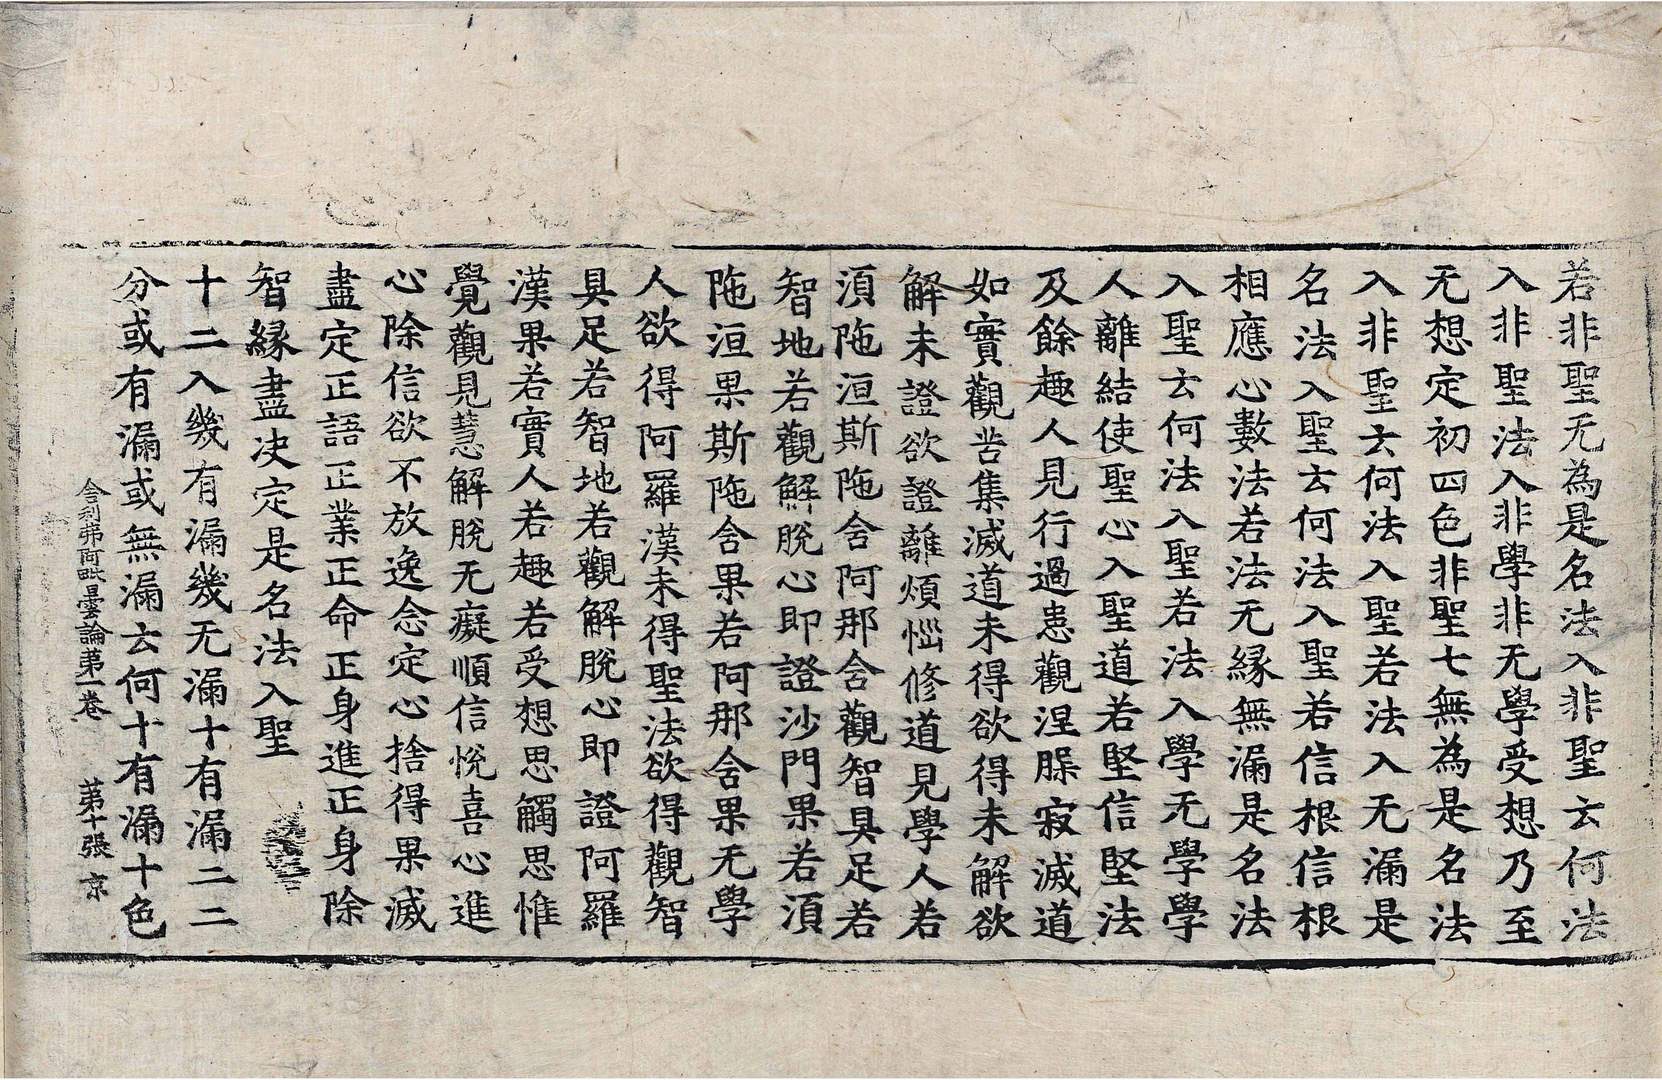 若非聖无為是名法入非聖云何法
入非聖法入非學非无學受想乃至
无想定初四色非聖七無為是名法
入非聖云何法入聖若法入无漏是
名法入聖云何法入聖若信根信根
相應心數法若法无緣無漏是名法
入聖云何法入聖若法入學无學學
人離結使聖心入聖道若堅信堅法
及餘趣人見行過患觀涅槃寂滅道
如實觀苦集滅道未得欲得未解欲
解未證欲證離煩惱修道見學人若
湏陁洹斯陁舍阿那舍觀智具足若
智地若觀解脫心即證沙門果若湏
陁洹果斯陁舍果若阿那舍果无學
人欲得阿羅漢未得聖法欲得觀智
具足若智地若觀解脫心即證阿羅
漢果若實人若趣若受想思觸思惟
覺觀見慧解脫无癡順信悅喜心進
心除信欲不放逸念定心捨得果滅
盡定正語正業正命正身進正身除
智緣盡决定是名法入聖
十二入幾有漏幾无漏十有漏二二
分或有漏或無漏云何十有漏十色
舍利弗阿毗曇論第一卷　第十張　京